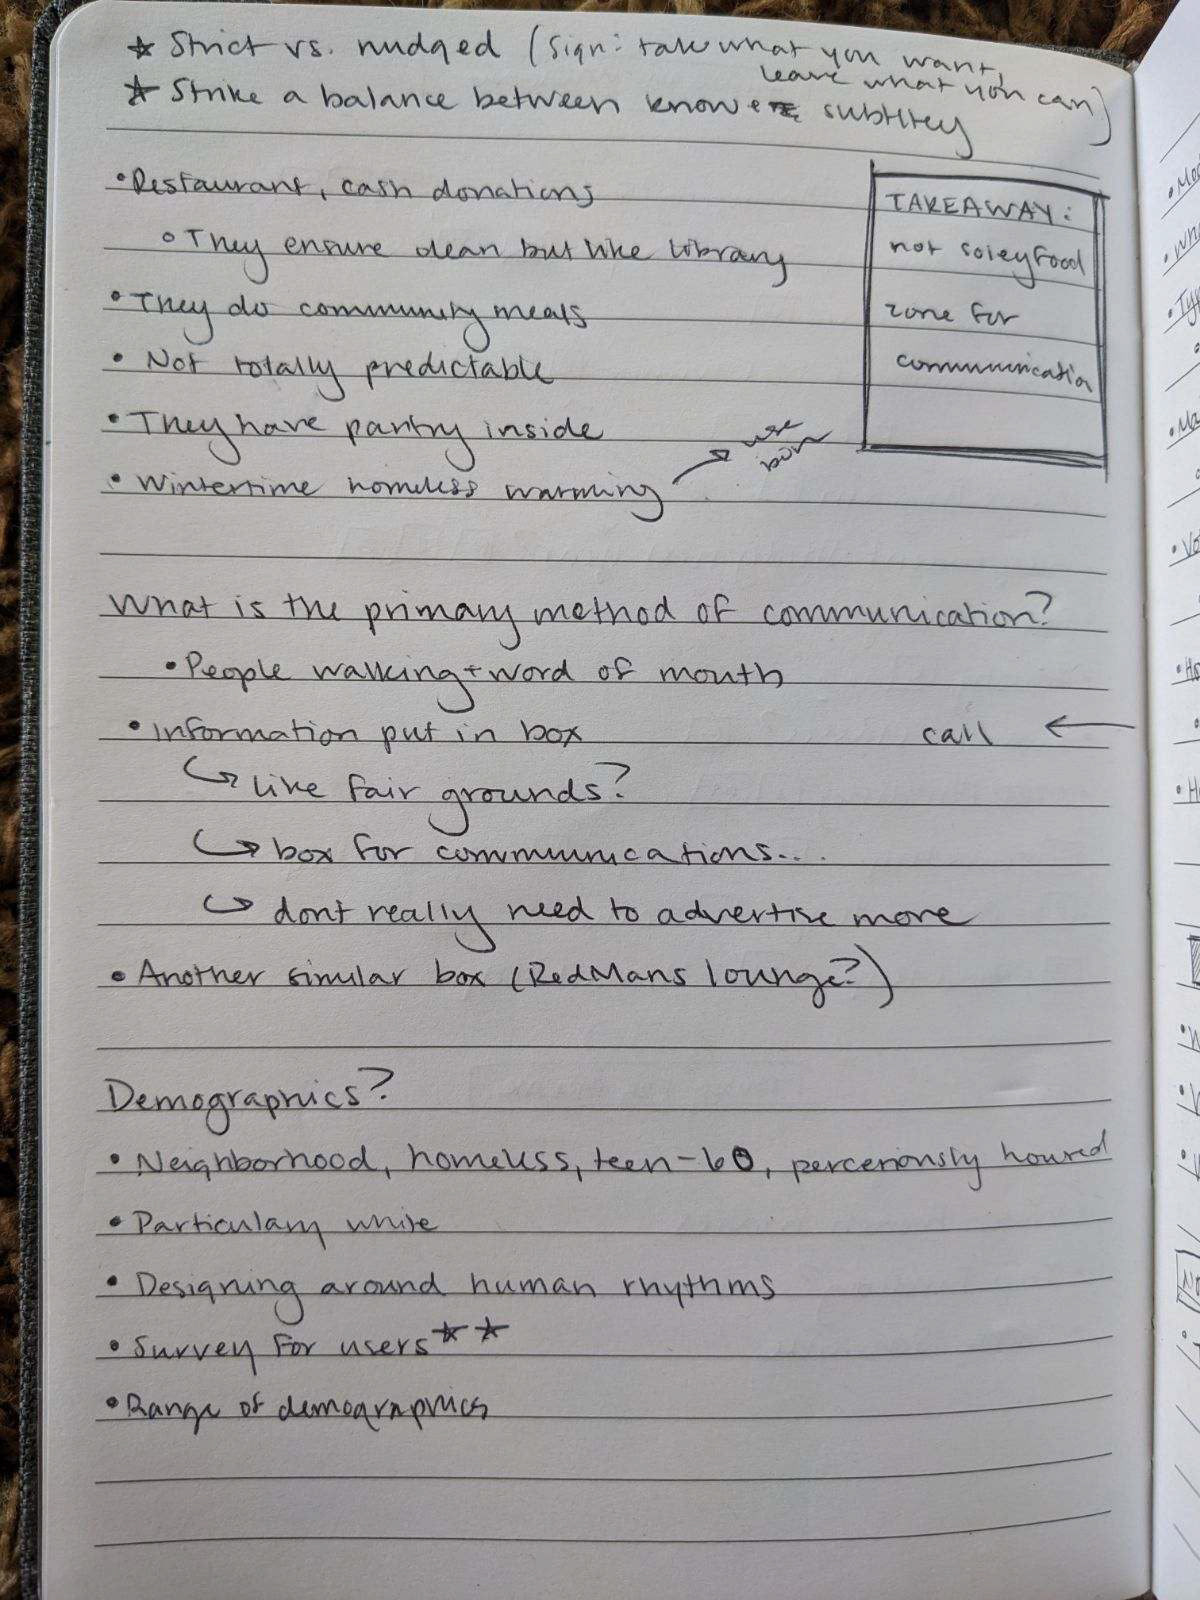 ★ Strict vs. nudged (sign: take what you want,
leave what you can)
★ Strike a balance between know & subtlety
• Restaurant, cash donations
◦ They ensure clean but like library
• They do community meals
• Not totally predictable
• They have pantry inside
• Wintertime homeless warming → use
TAKEAWAY:
not soley food
zone for
communication
What is the primary method of communication?
• People walking + word of mouth
• Information put in box
call ←
↪ like fair grounds?
↪ box for communications...
↪ dont really need to advertise more
• Another similar box (RedMans lounge?)
Demographics?
• Neighborhood, homeless, teen-60, perceriously housed
• Particulary white
• Designing around human rhythms
• Survey for users ★ ★
• Range of demographics